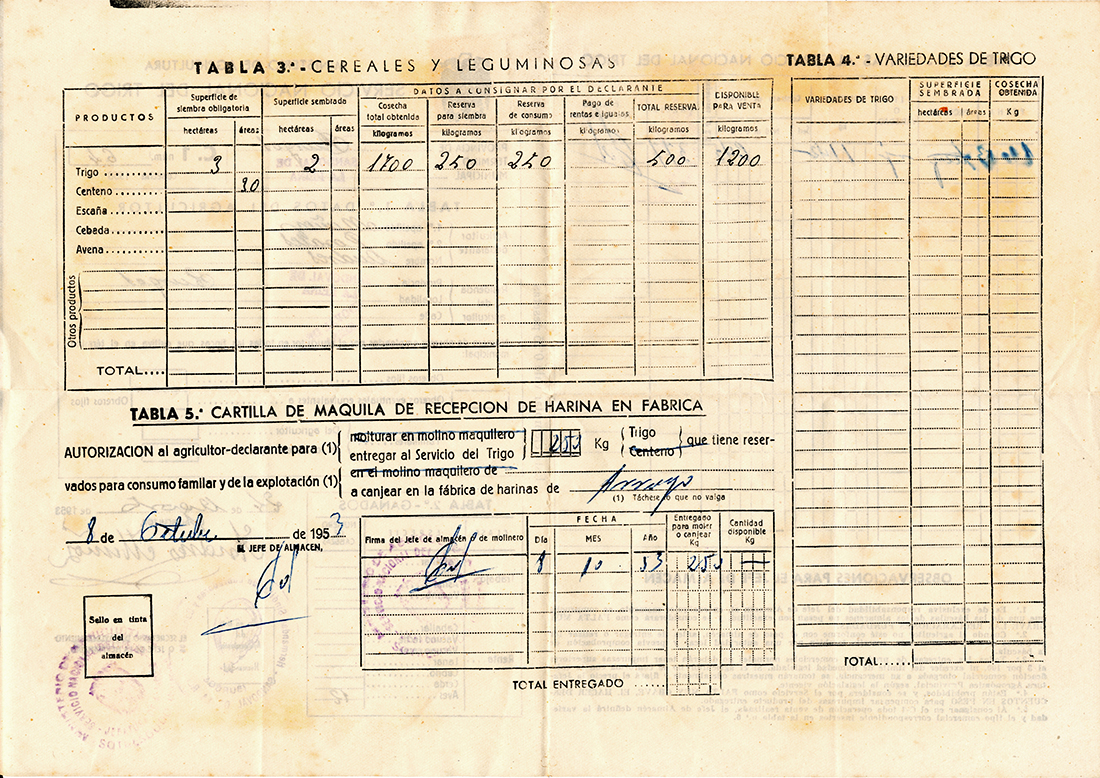 TABLA 3.ª - CEREALES Y LEGUMINOSAS
PRODUCTOS
Superficie de siembra obligatoria
hectáreas áreas
Superficie sembrada
hectáreas áreas
DATOS A CONSIGNAR POR EL DECLARANTE
Cosecha total obtenida
kilogramos
Reserva para siembra
kilogramos
Reserva de consumo
kilogramos
Pago de rentas e igualas
kilogramos
TOTAL RESERVA
kilogramos
DISPONIBLE PARA VENTA
kilogramos
Trigo 3 2 1700 250 250 500 1200
Centeno 30
Escaña
Cebada
Avena
Otros productos
TOTAL....
TABLA 4.ª - VARIEDADES DE TRIGO
VARIEDADES DE TRIGO
SUPERFICIE SEMBRADA
hectáreas áreas
COSECHA OBTENIDA
Kg
TOTAL.....
TABLA 5.ª CARTILLA DE MAQUILA DE RECEPCION DE HARINA EN FABRICA
AUTORIZACION al agricultor-declarante para (1)
molturar en molino maquilero
entregar al Servicio del Trigo
250 Kg
Trigo
Centeno
que tiene reser-
vados para consumo familiar y de la explotación (1)
en el molino maquilero de
a canjear en la fábrica de harinas de Arroyo
(1) Táchese lo que no valga
8 de Octubre de 1953
EL JEFE DE ALMACEN,
Sello en tinta
del
almacén
Firma del Jefe de almacén o de molinero
FECHA
Día MES Año
Entregado para moler o canjear Kg
Cantidad disponible Kg
8 10 53 250
TOTAL ENTREGADO